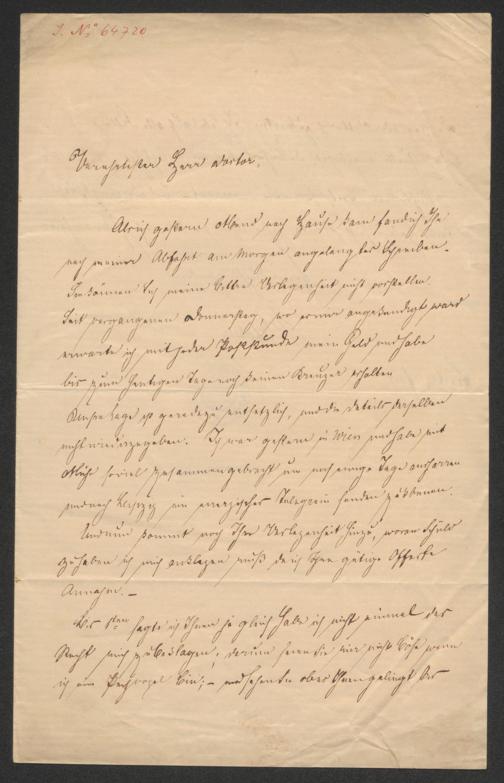 J. No 64720
Verehrtester Herr Doctor,
Als ich gestern Abend nach Hause kam fand ich Ihr
nach meiner Abfahrt am Morgen angelangtes Schreiben.
Sie können sich meine Verlegenheit nicht vorstellen
Seit vergangenen Donnerstag, wo es mir angekündigt ward
erwarte ich mit jeder Poststunde mein Geld und habe
bis zum heutigen Tage noch keinen Kreuzer erhalten
Unsre Lage ist geradezu entsetzlich, und die Details derselben
nicht wiederzugeben. Ich war gestern in Wien und habe mit
Mühe soviel zusammengebracht um noch einige Tage ausharren
und nach Leipzig ein energisches Telegram senden zu können.
Und nun kommt noch Ihre Verlegenheit hinzu, woran Schuld
zu haben ich mich anklagen muß da ich Ihre gütige Offerte
Annahm. –
sagte ich Ihnen ja gleich habe ich nicht einmal das
Recht mich zu beklagen; darum seien Sie mir nicht böse wenn
ich ein Pechvogel bin; – und sehen Sie ob es Ihnen gelingt